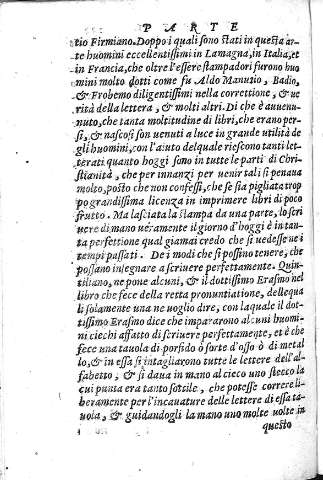 PARTE
tio Firmiano. Doppo i quali sono stati in questa ar-
te huomini eccellentissimi in Lamagna, in Italia, et
in Francia, che oltre l'essere stampadori furono huo
mini molto dotti come fu Aldo Manutio, Badio,
& Frobemo diligentissimi nella correttione, & ue
rità della lettera, & molti altri. Di che è auuenu-
nuto, che tanta moltitudine di libri, che erano per-
si, & nascosi son uenuti a luce in grande utilità de
gli huomini, con l'aiuto del quale riescono tanti let-
terati quanto hoggi sono in tutte le parti di Chri-
stianità, che per innanzi per uenir tali si penaua
molto, posto che non confessi, che se sia pigliata trop
po grandissima licenza in imprimere libri di poco
frutto. Ma lasciata la stampa da una parte, lo scri
uere di mano ueramente il giorno d'hoggi è in tan-
ta perfettione qual giamai credo che si uedesse ne i
tempi passati. De i modi che si possino tenere, che
possano insegnare a scriuere perfettamente. Quin-
tiliano, ne pone alcuni, & il dottissimo Erasmo nel
libro che fece della retta pronuntiatione, delle qua
li solamente una ne uoglio dire, con la quale il dot-
tissimo Erasmo dice che impararono alcuni huomi-
ni ciechi affatto di scriuere perfettamente, et è che
fece una tauola di porfido ò forte d'osso ò di metal
lo, & in essa si intagliarono tutte le lettere dell'al-
fabetto, & si daua in mano al cieco uno stecco la
cui punta era tanto sottile, che potesse correre li-
beramente per l'incauature delle lettere di essa ta-
uola, & guidandogli la mano uno molte uolte in
questo